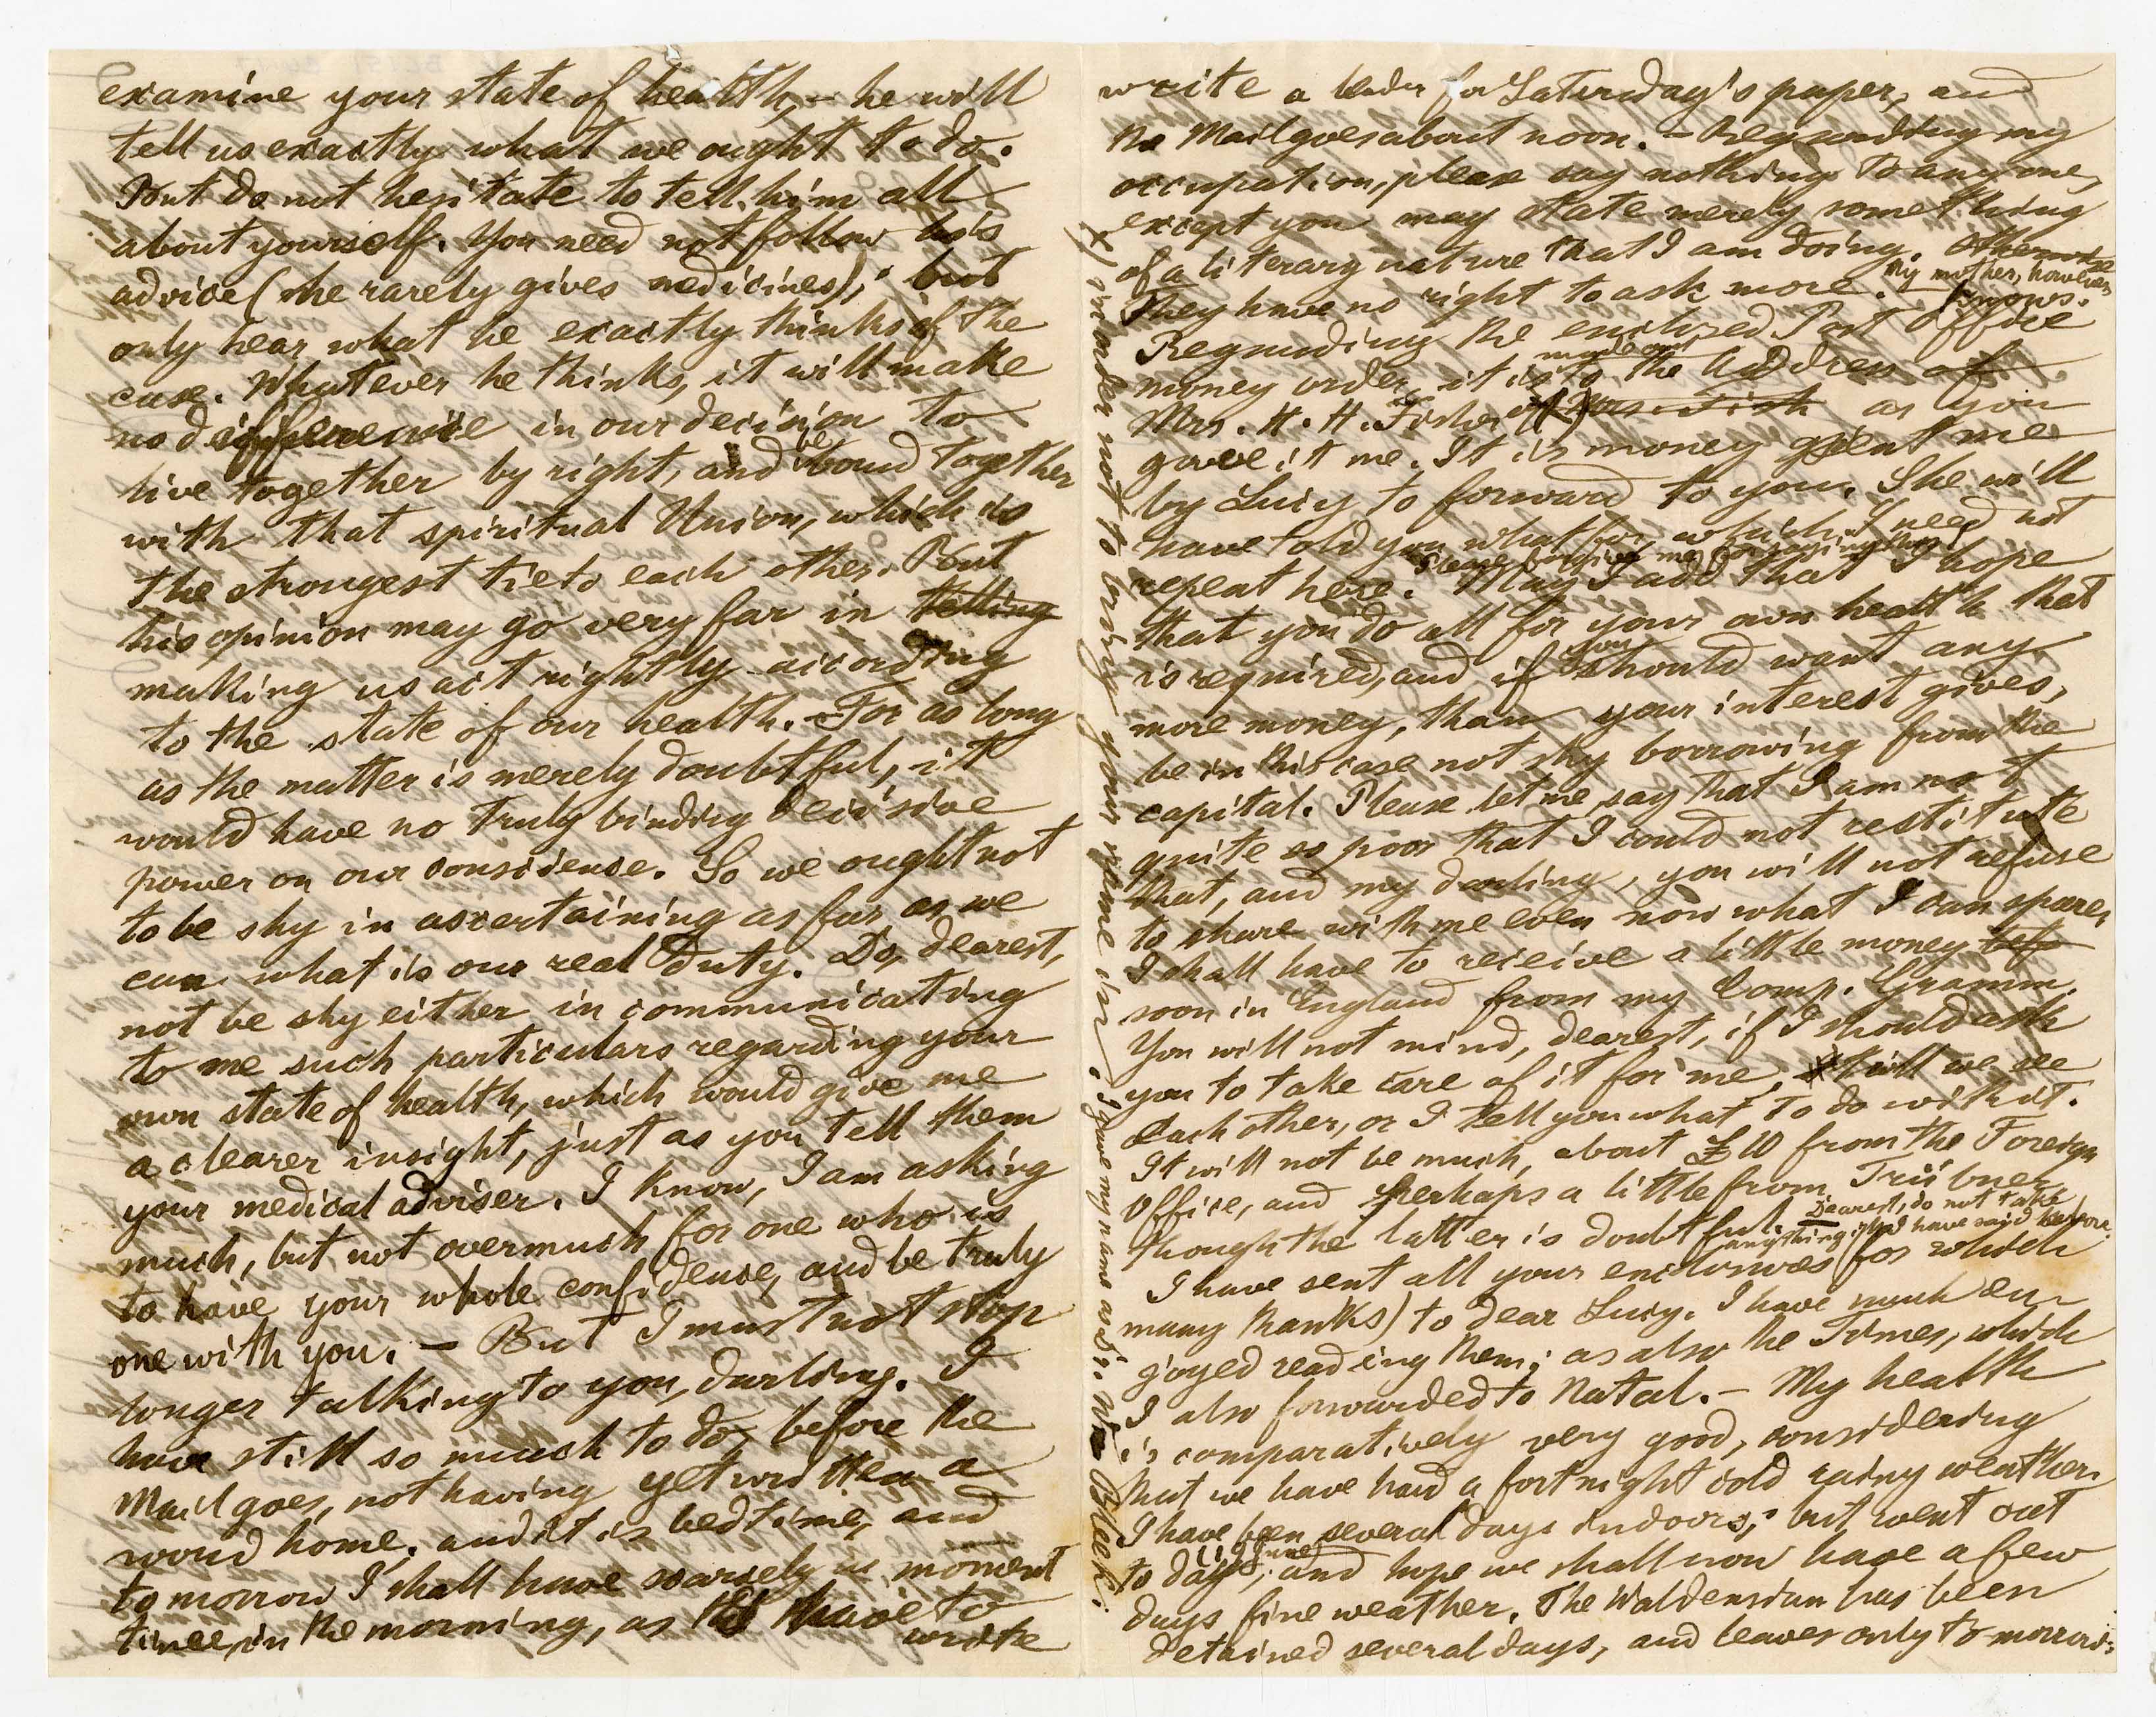 examine your state of health, - he will
tell us exactly what we ought to do.
But do not hesitate to tell him all
about yourself. You need not follow his
advice (he rarely gives medicines); but
only hear what he exactly thinks of the
case. Whatever he thinks, it will make
no difference in our decision to
live together by right, and be bound together
with that spiritual Union, which is
the strongest tie to each other. But
his opinion may go very far in telling
making us act rightly according
to the state of our health. - For as long
as the matter is merely doubtful, it
would have no truly binding decisive
power on our conscience. So we ought not
to be shy in ascertaining as far as we
can what is our real Duty. Do, dearest,
not be shy either in communicating
to me such particulars regarding your
own state of health, which would give me
a clearer insight, just as you tell them
your medical adviser. I know, I am asking
much, but not overmuch for one who is
to have your whole confidence, and be truly
one with you. - But I must not stop
longer talking to you, darling. I
have still so much to do, before the
Mail goes, not having yet written a
word home, and it is bedtime, and
tomorrow I shall have scarcely a moment
time, in the morning, as I have to
write
write a leader for Saturday's paper, and
the Mail goes about noon. - Regarding my
occupation, please say nothing to anyone,
except you may state merely something
of a literary nature that I am doing. Otherwise
They have no right to ask more. - My mother, however, knows.
Regarding the enclosed Post Office
money order, it is made out to the address of
Mrs. H. H. Fisher (x) Mrs. Fish as you
gave it me. It is money sent me
by Lucy to forward to you. She will
have told you what for, which I need not
repeat here. Please forgive me for saying May I add that I hope
that you do all for your own health that
is required, and if you should want any
more money, than your interest gives,
be in this case not shy borrowing from the
capital. Please let me say that I am not
quite so poor that I could not restitute
that, and my darling, you will not refuse
to share with me even now what I can spare.
I shall have to receive a little money
soon in England from my Comp. Gramm.
You will not mind, dearest, if I should ask
you to take care of it for me, till we see
each other, or I tell you what to do with it.
It will not be much, about £10 from the Foreign
Office, and perhaps a little from Trübner
though the latter is doubtful. - Dearest, do not take
anything I have said
I have sent all your enclosures (for which
many thanks) to dear Lucy. I have much en-
joyed reading them; as also the Times, which
I also forwarded to Natal. - My health
is comparatively very good, considering
that we have had a fortnight cold rainy weather.
I have been several days indoors; but went out
to day (19 June), and hope we shall now have a few
days fine weather. The Waldensian has been
detained several days, and leaves only to-morrow.
x) in order not to bring your name in, I gave my name as Dr. Wm Bleek.